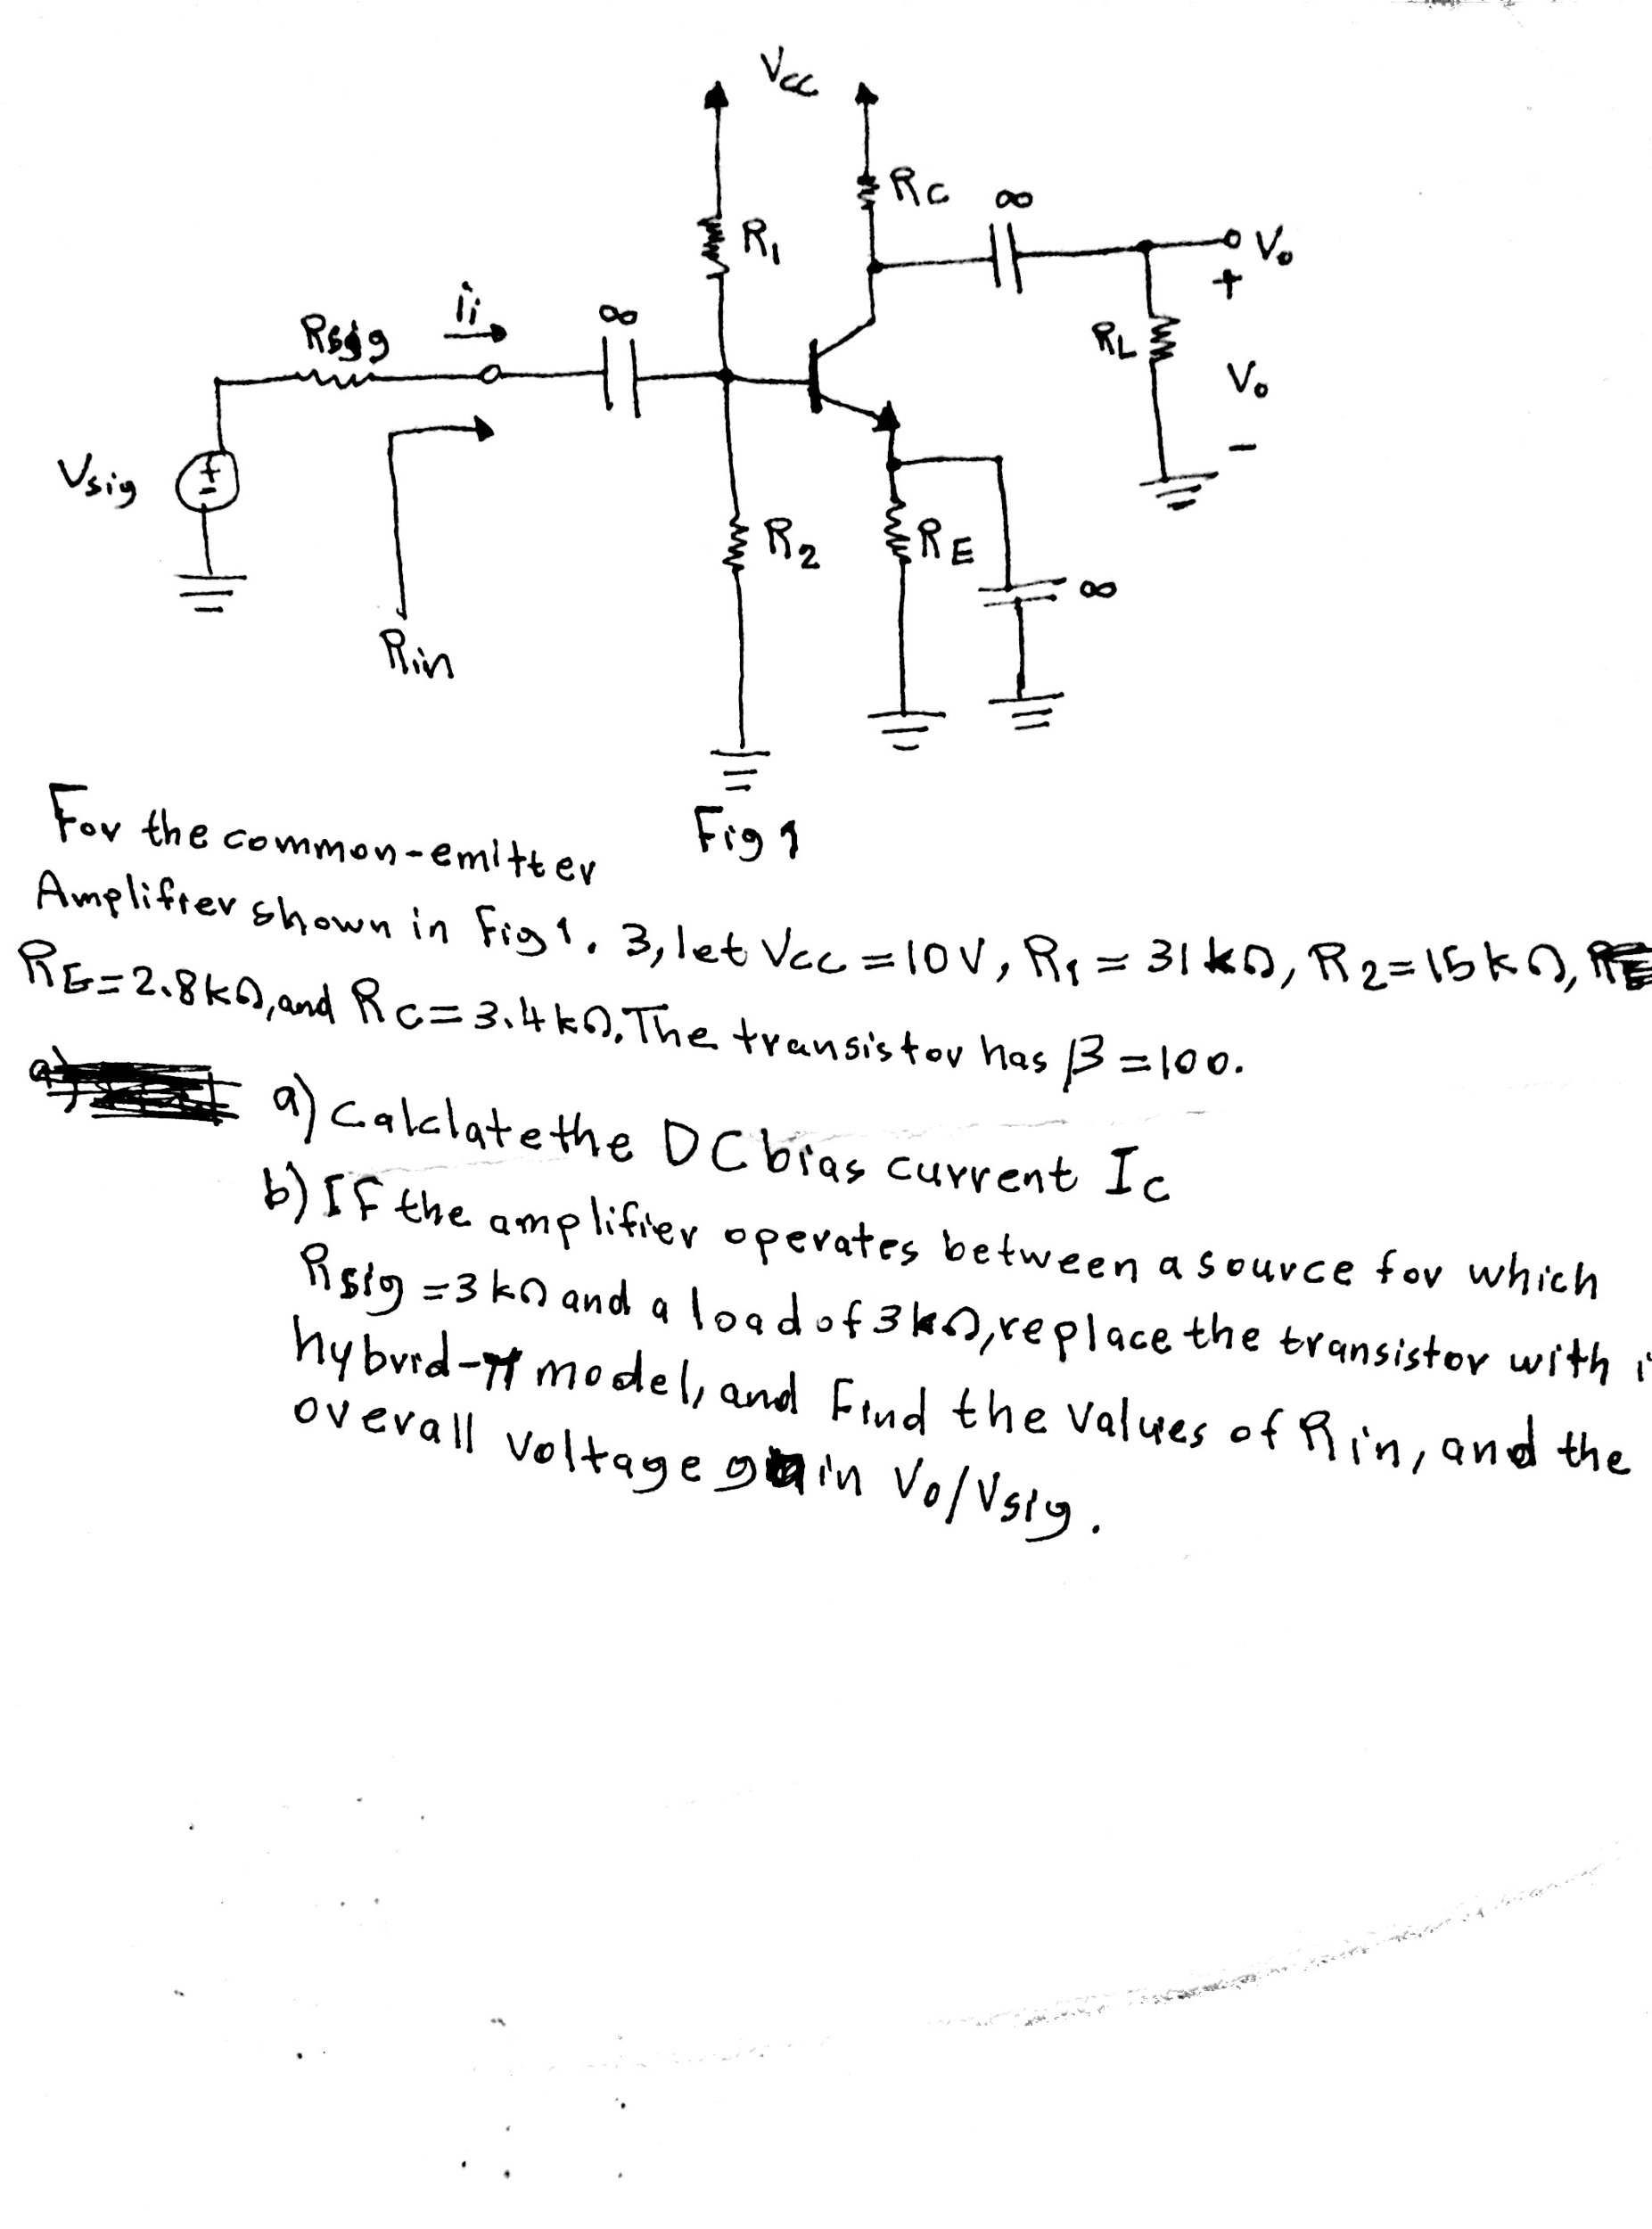 Vcc
RC
∞
R1
Vo
+
ii
∞
Rsig
RL
Vo
-
Vsig
+
-
R2
RE
∞
Rin
Fig 1
For the common-emitter
Amplifier shown in Fig 1. 3, let Vcc = 10V, R1 = 31 kΩ, R2=15kΩ,
RE=2.8kΩ, and RC=3.4kΩ. The transistor has β=100.
a) Calclate the DC bias current Ic
b) If the amplifier operates between a source for which
Rsig =3kΩ and a load of 3kΩ, replace the transistor with i
hybrid-π model, and find the values of Rin, and the
overall voltage gain Vo/Vsig.